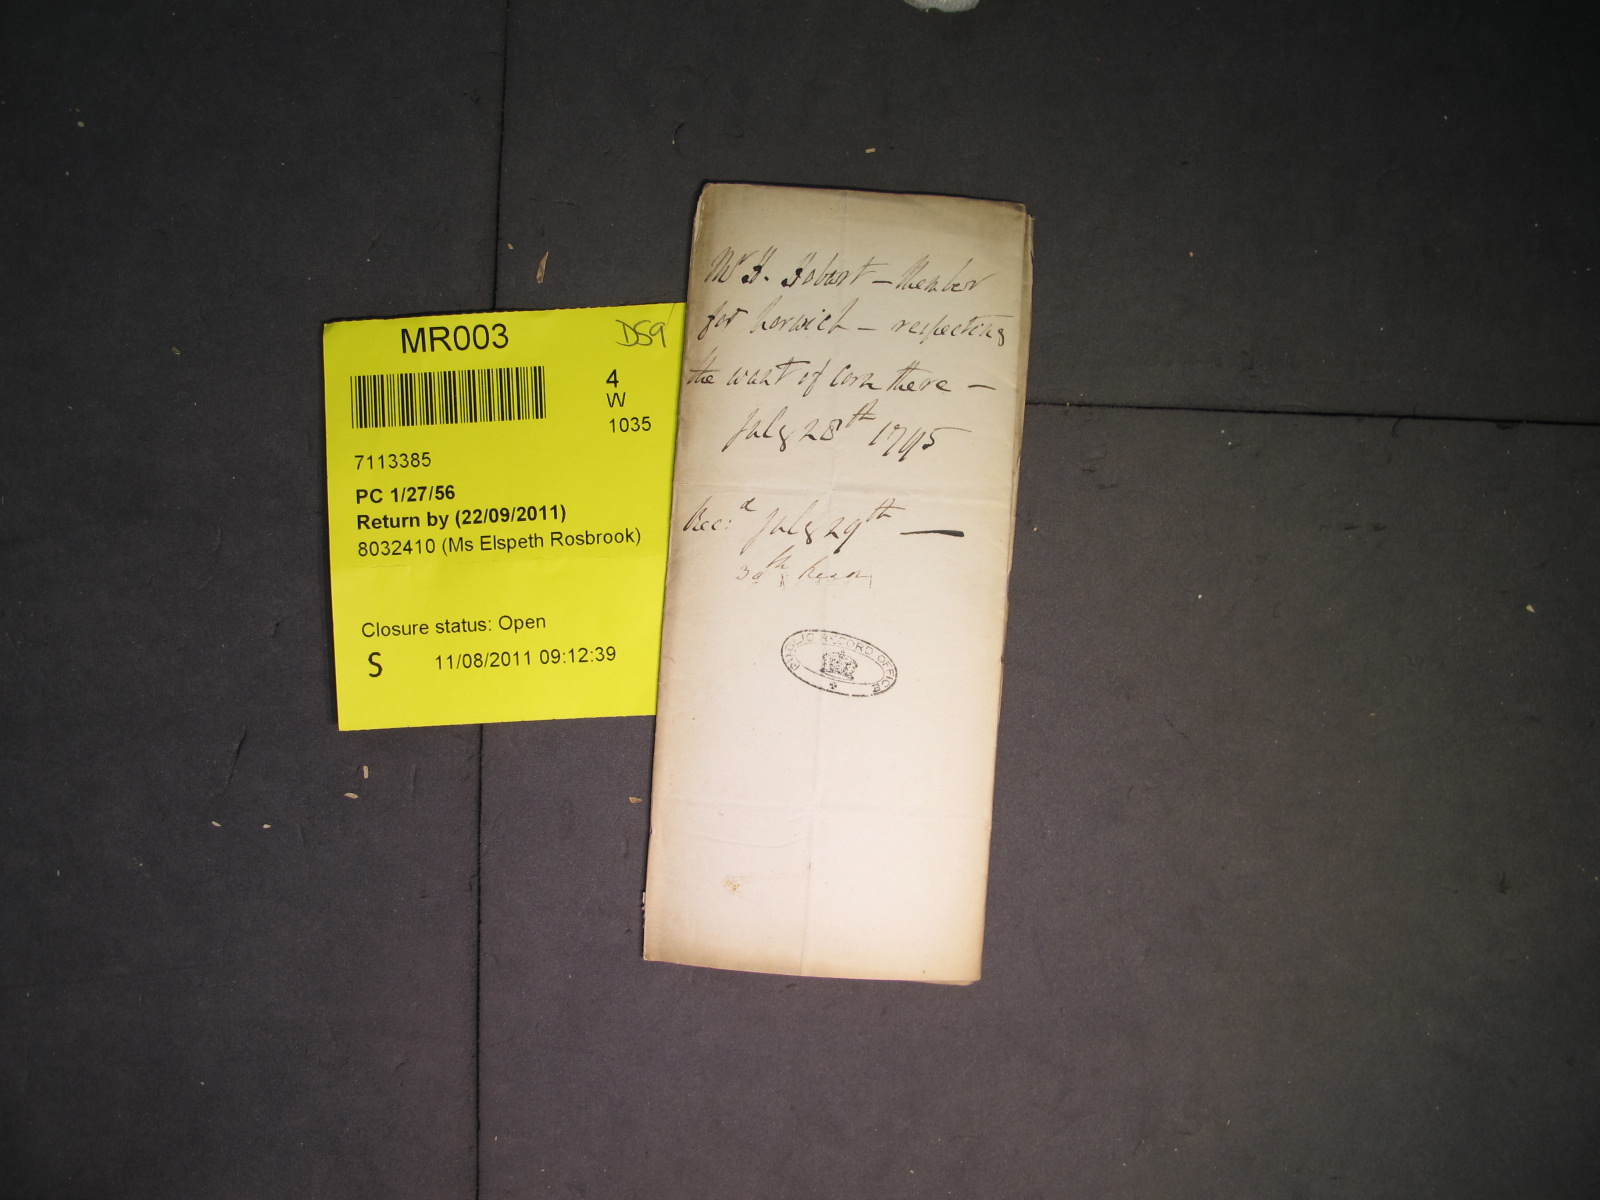 MR003
DS9
4
W
1035
7113385
PC 1/27/56
Return by (22/09/2011)
8032410 (Ms Elspeth Rosbrook)
Closure status: Open
S 11/08/2011 09:12:39
Mr H. Hobart – Member
for Norwich – respecting
the want of Corn there –
July 28th 1795
Rec:d July 29th —
30th
PUBLIC RECORD OFFICE